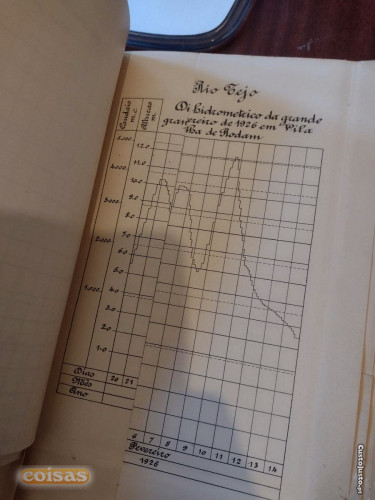 Rio Tejo
hidrometrico da grande
de 1926 em Vila
de Rodam
Caudais
m.c.
Alturas
m.
5.000
12.0
4.000
11.0
10.0
3.000
9.0
8.0
2.000
7.0
6.0
5.0
1.000
4.0
3.0
2.0
1.0
Dias 20 21
Mês
Ano
6 7 8 9 10 11 12 13 14
Fevereiro
1926
coisas
CustoJusto.pt